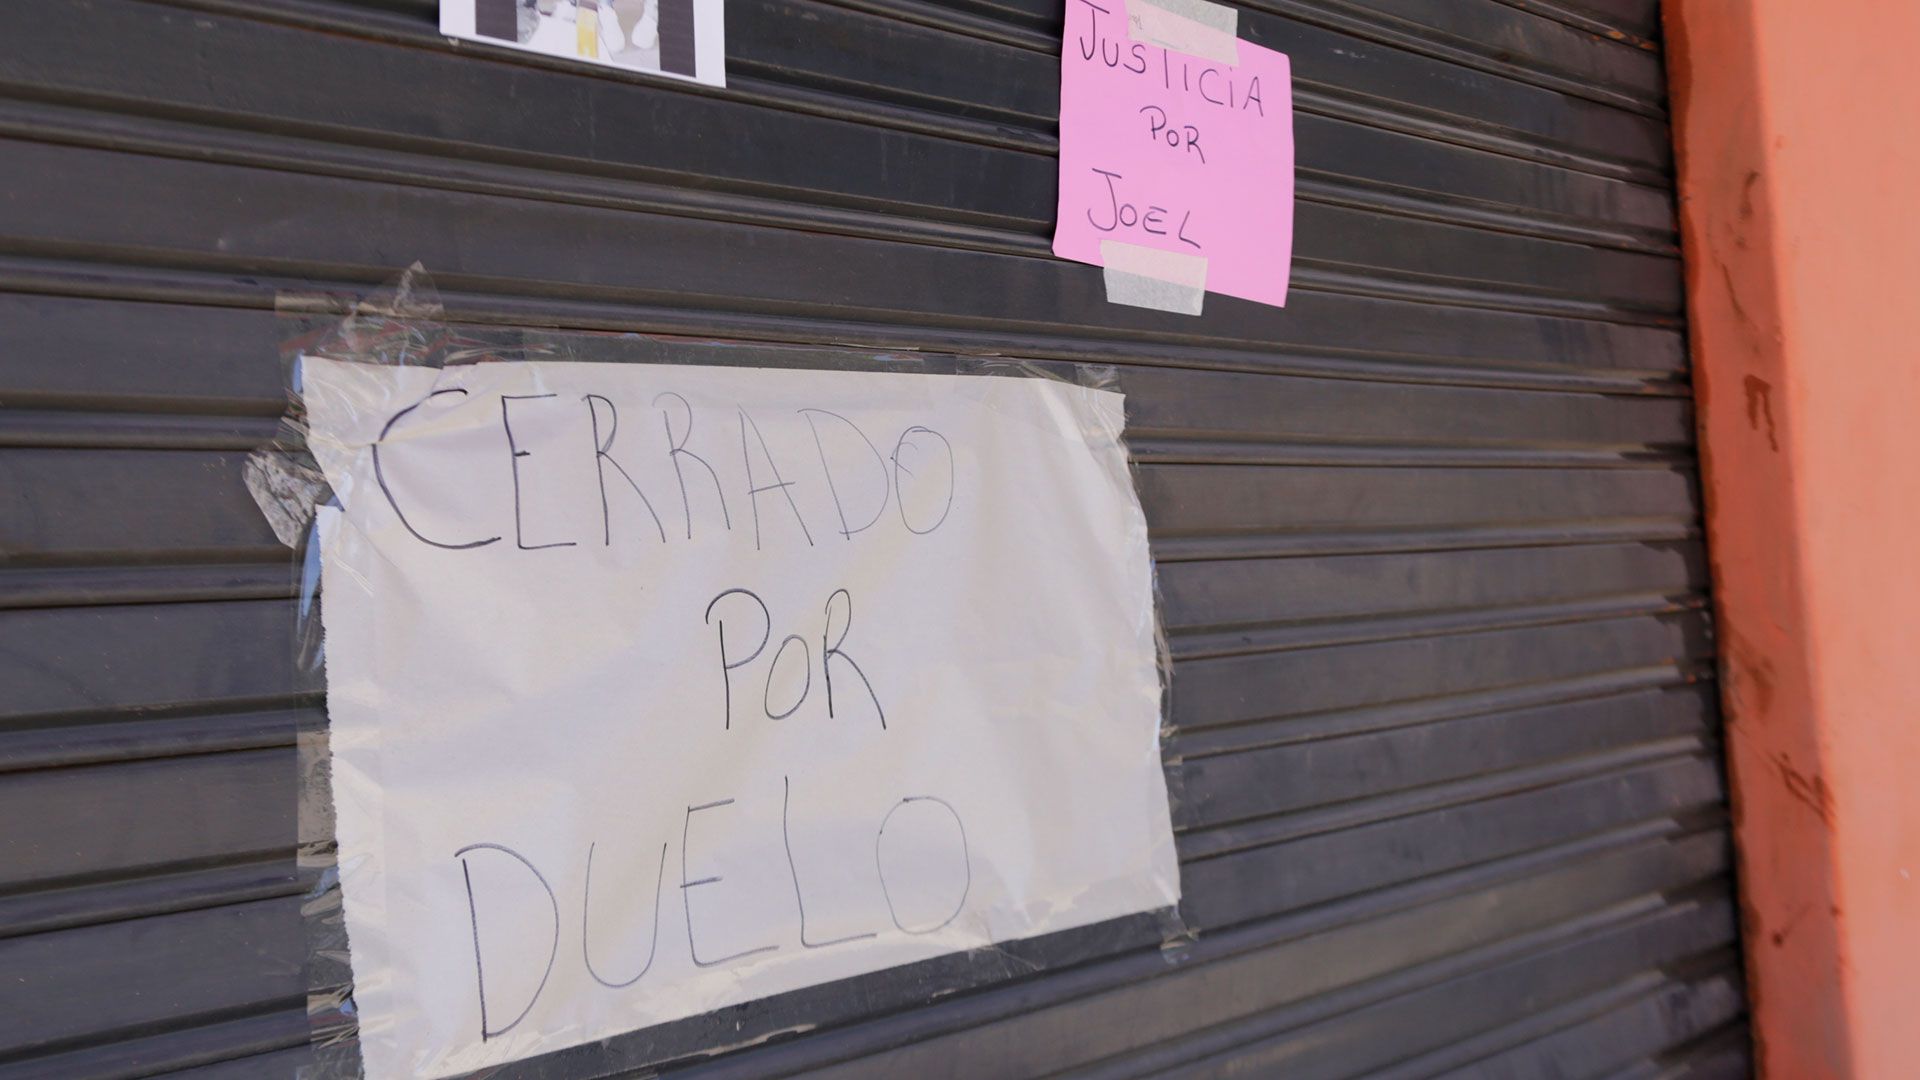 JUSTICIA
POR
JOEL
CERRADO
POR
DUELO